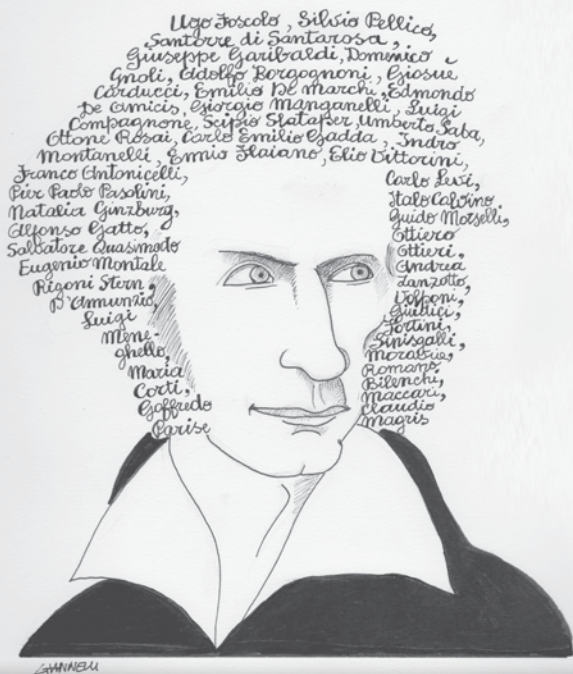 Ugo Foscolo, Silvio Pellico,
Santorre di Santarosa,
Giuseppe Garibaldi, Domenico
Gnoli, Adolfo Borgognoni, Giosue
Carducci, Emilio De Marchi, Edmondo
De Amicis, Giorgio Manganelli, Luigi
Compagnone, Scipio Slataper, Umberto Saba,
Ottone Rosai, Carlo Emilio Gadda, Indro
Montanelli, Ennio Flaiano, Elio Vittorini,
Franco Antonicelli,
Pier Paolo Pasolini,
Natalia Ginzburg,
Alfonso Gatto,
Salvatore Quasimodo
Eugenio Montale
Rigoni Stern,
D'Annunzio,
Luigi
Mene-
ghello,
Maria
Corti,
Goffredo
Parise
Carlo Levi,
Italo Calvino,
Guido Morselli,
Ottiero
Ottieri,
Andrea
Zanzotto,
Volponi,
Giudici,
Fortini,
Sinisgalli,
Moravia,
Romano,
Bilenchi,
Maccari,
Claudio
Magris
GIANNELLI